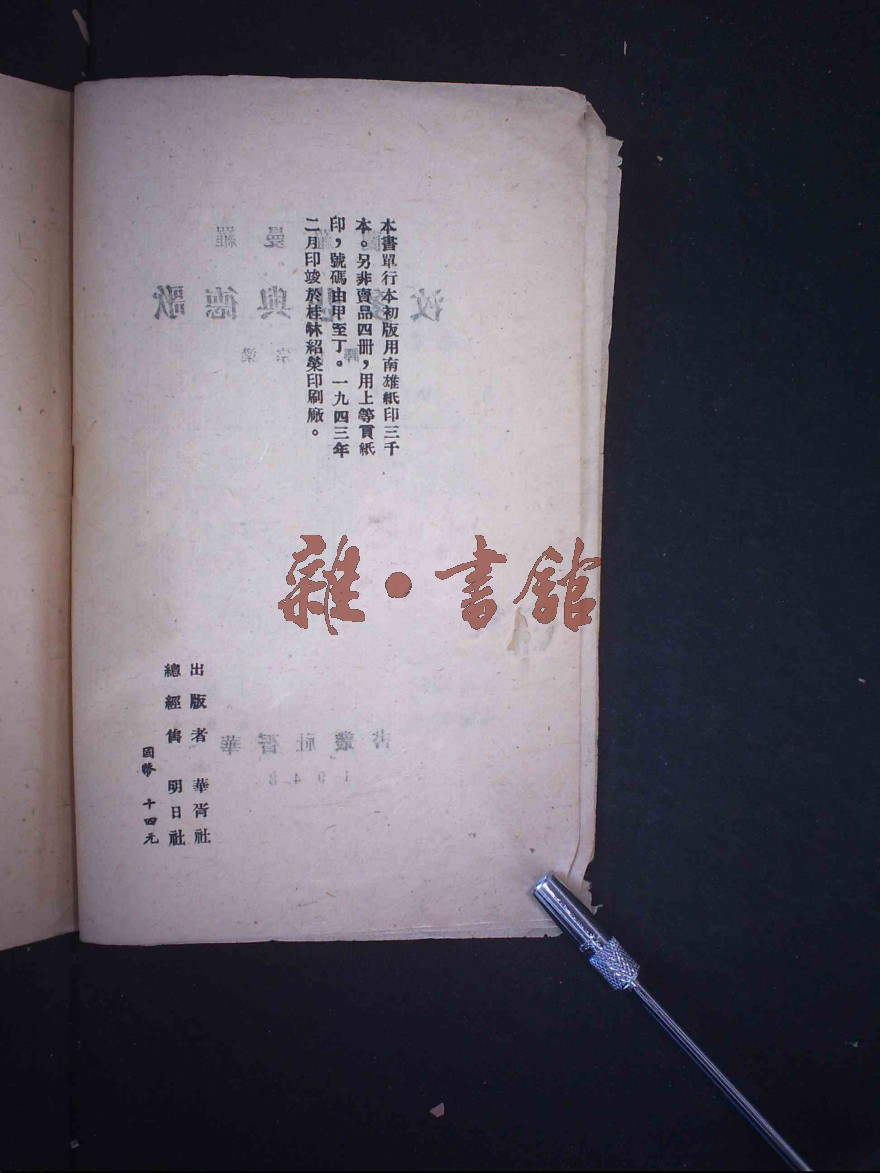 本書單行本初版用南雄紙印三千
本。另非賣品四冊，用上等貢紙
印，號碼由甲至丁。一九四三年
二月印竣於桂林紹榮印刷廠。
雜·書館
出版者 華胥社
總經售 明日社
國幣 十四元